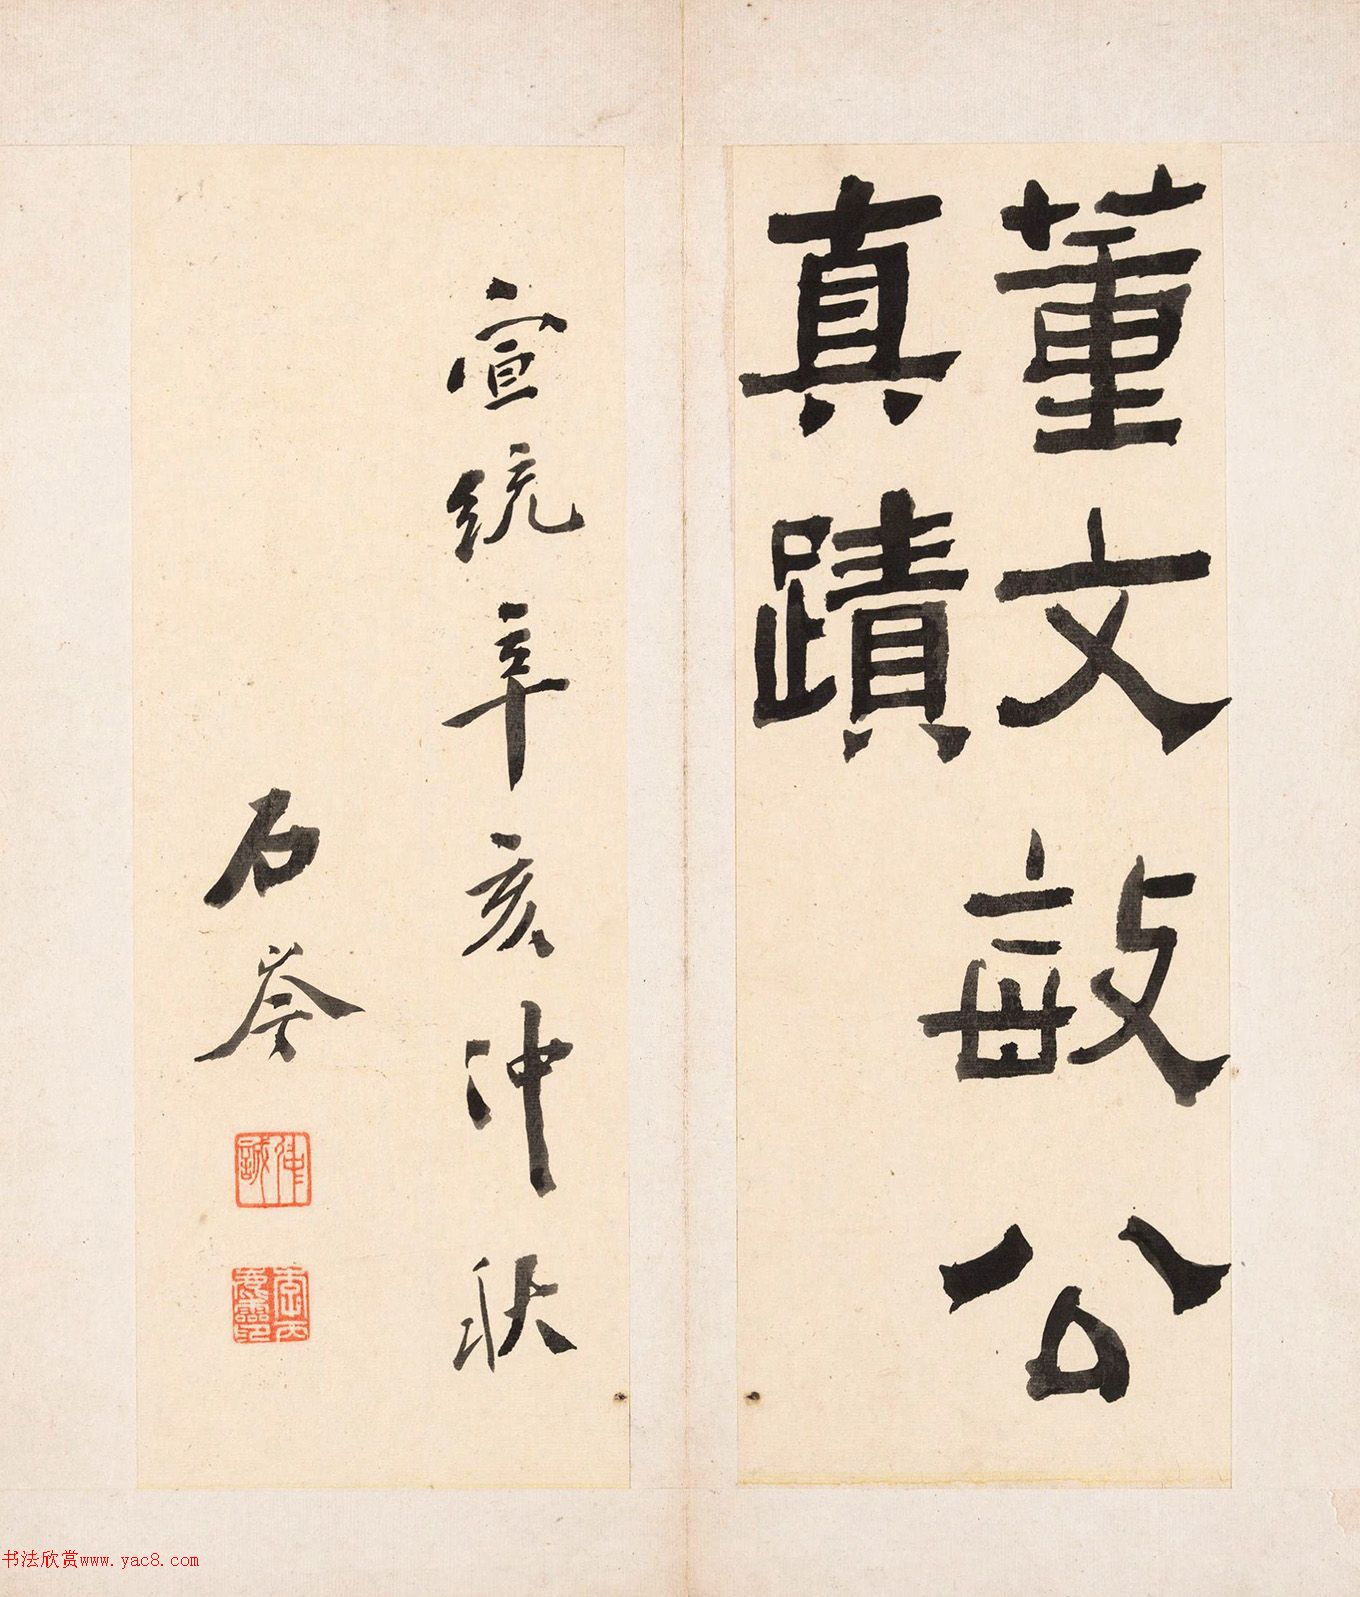 董文敏公
真蹟
宣統辛亥仲秋
石岑
书法欣赏www.yac8.com